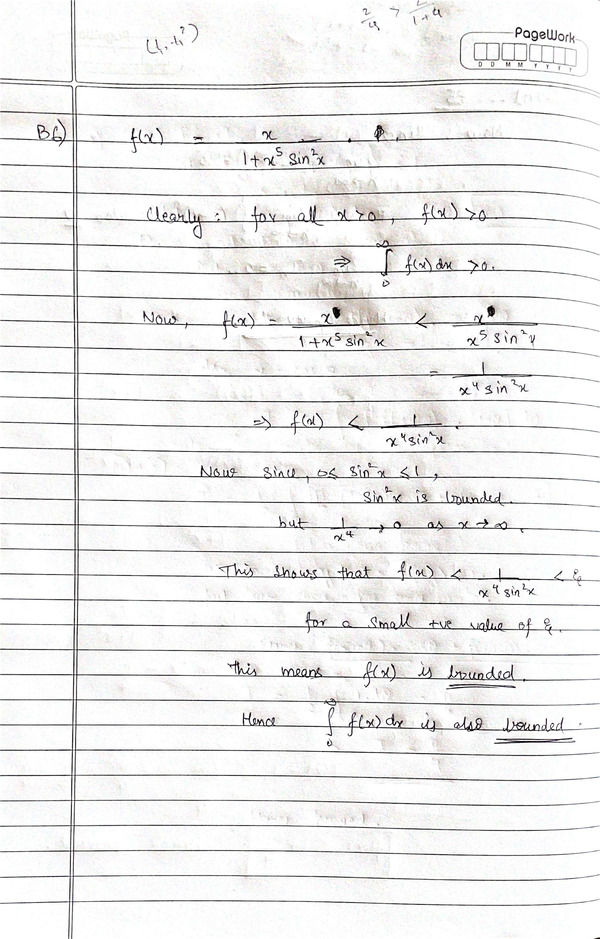 2/4 > 2/(1+4)
PageWork
D D M M Y Y Y Y
B6) f(x) = x/(1+x⁵ sin²x) .
Clearly : for all x>0, f(x)>0.
⇒ ∫₀^∞ f(x)dx >0.
Now, f(x) = x/(1+x⁵ sin²x) < x/(x⁵ sin²x)
= 1/(x⁴ sin²x)
⇒ f(x) < 1/(x⁴ sin²x).
Now since, 0≤ sin²x ≤1,
sin²x is bounded.
but 1/x⁴ → 0 as x → ∞.
This shows that f(x) < 1/(x⁴ sin²x) < ξ
for a small +ve value of ξ.
this means f(x) is bounded.
Hence ∫₀^∞ f(x)dx is also bounded.